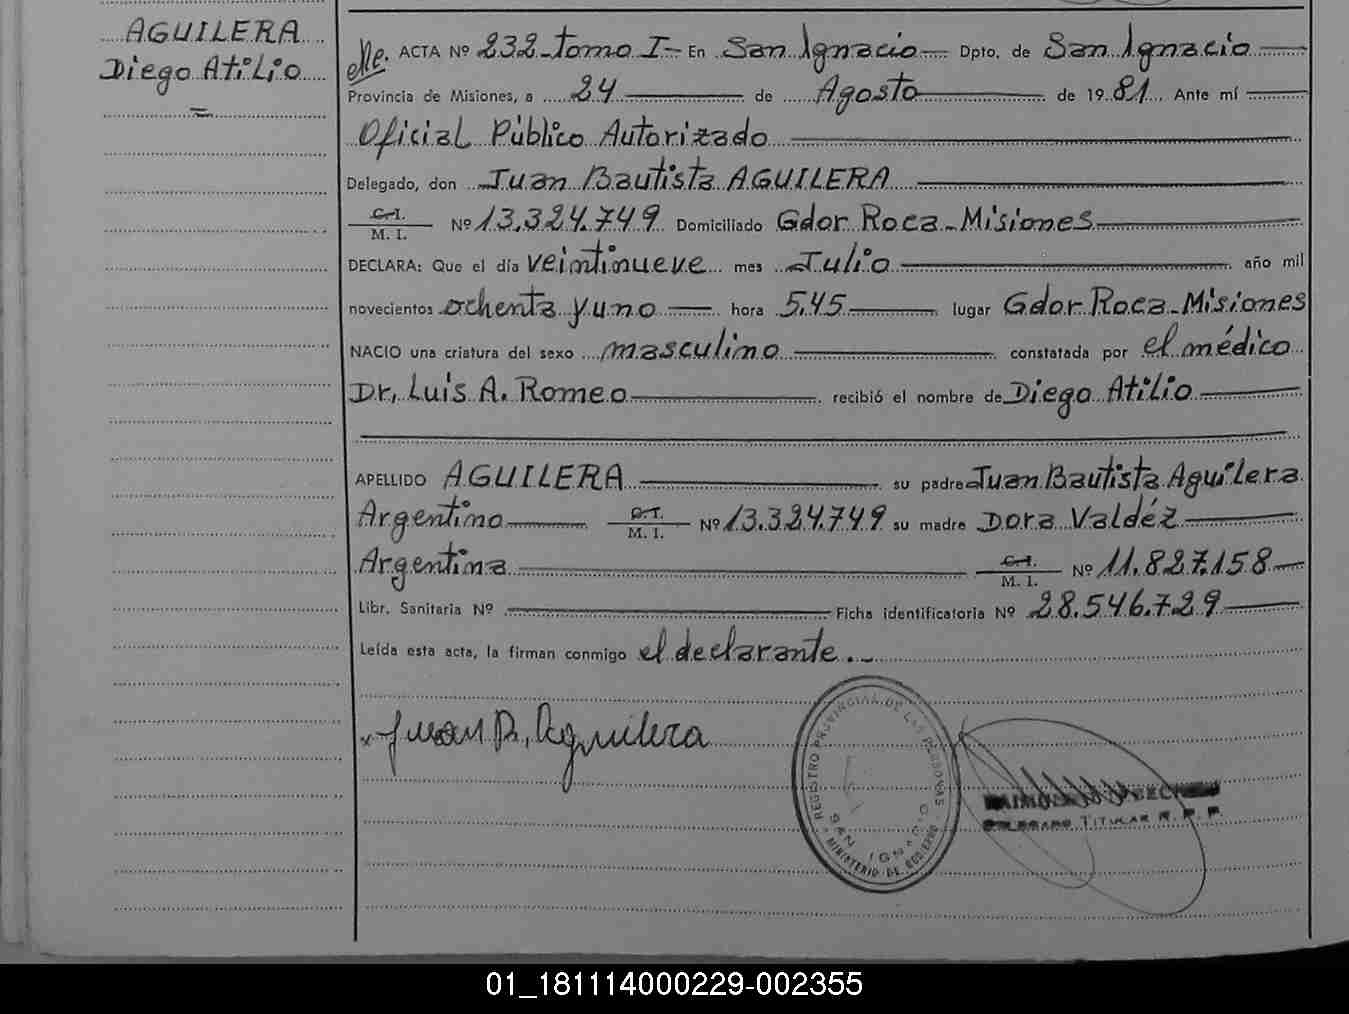 AGUILERA
Diego Atilio
ACTA Nº 232-tomo I- En San Ignacio Dpto. de San Ignacio
Provincia de Misiones, a 24 de Agosto de 1981 Ante mí
Oficial Público Autorizado
Delegado, don Juan Bautista AGUILERA
C.I.
M. I. Nº 13.324.749 Domiciliado Gdor Roca-Misiones
DECLARA: Que el día veintinueve mes Julio año mil
novecientos ochenta y uno hora 5.45 lugar Gdor Roca-Misiones
NACIO una criatura del sexo masculino constatada por el médico
Dr. Luis A. Romeo recibió el nombre de Diego Atilio
APELLIDO AGUILERA su padre Juan Bautista Aguilera
Argentino C.I. M. I. Nº 13.324.749 su madre Dora Valdéz
Argentina C.I. M. I. Nº 11.827.158
Libr. Sanitaria Nº Ficha identificatoria Nº 28.546.729
Leída esta acta, la firman conmigo el declarante.-
Juan B. Aguilera
REGISTRO PROVINCIAL DE LAS PERSONAS
SAN IGNACIO
MINISTERIO DE GOBIERNO
TITULAR R. P. P.
01_181114000229-002355